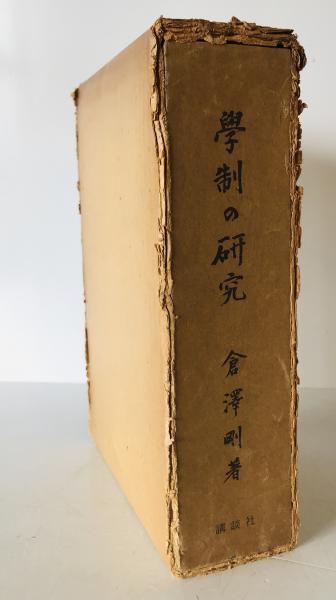 學制の硏究
倉澤剛著
講談社